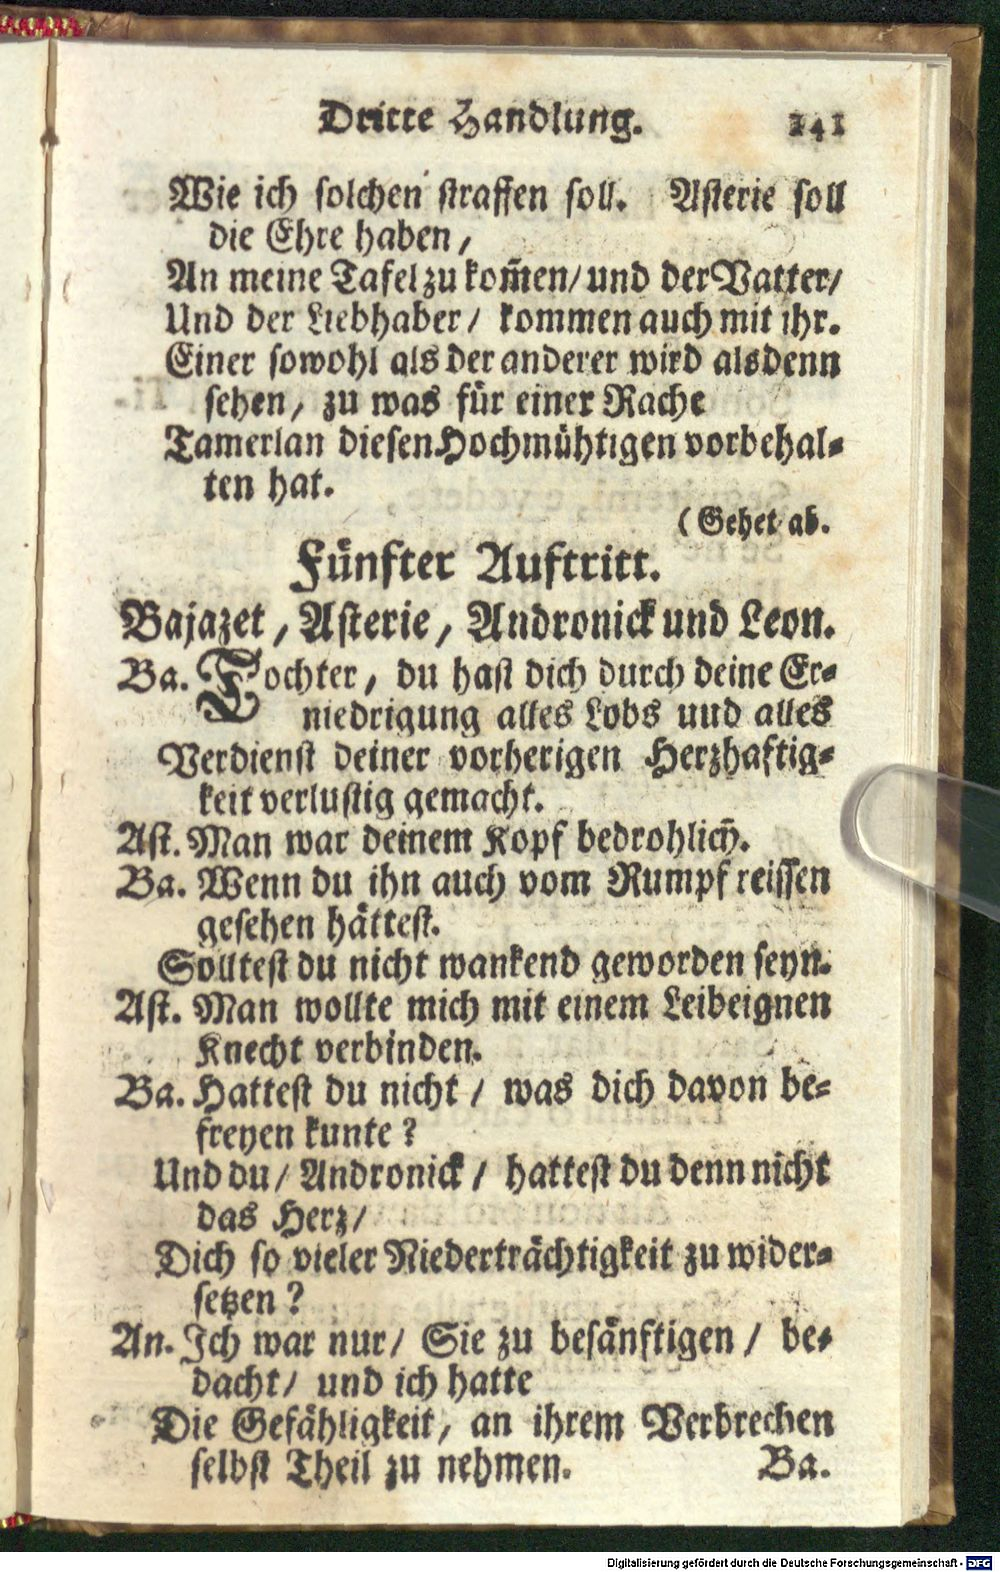 Dritte Handlung. 241
Wie ich solchen straffen soll. Asterie soll
die Ehre haben,
An meine Tafel zu kom̃en/ und der Vatter/
Und der Liebhaber/ kommen auch mit ihr.
Einer sowohl als der anderer wird alsdenn
sehen, zu was für einer Rache
Tamerlan diesen Hochmühtigen vorbehal-
ten hat.
(Gehet ab.
Fünfter Auftritt.
Bajazet, Asterie, Andronick und Leon.
Ba. Tochter, du hast dich durch deine Er-
niedrigung alles Lobs uud alles
Verdienst deiner vorherigen Herzhaftig-
keit verlustig gemacht.
Ast. Man war deinem Kopf bedrohlich̃.
Ba. Wenn du ihn auch vom Rumpf reissen
gesehen hättest.
Solltest du nicht wankend geworden seyn.
Ast. Man wollte mich mit einem Leibeignen
Knecht verbinden.
Ba. Hattest du nicht/ was dich davon be-
freyen kunte?
Und du/ Andronick/ hattest du denn nicht
das Herz/
Dich so vieler Niederträchtigkeit zu wider-
setzen?
An. Ich war nur/ Sie zu besänftigen/ be-
dacht/ und ich hatte
Die Gefähligkeit, an ihrem Verbrechen
selbst Theil zu nehmen. Ba.
Digitalisierung gefördert durch die Deutsche Forschungsgemeinschaft - DFG